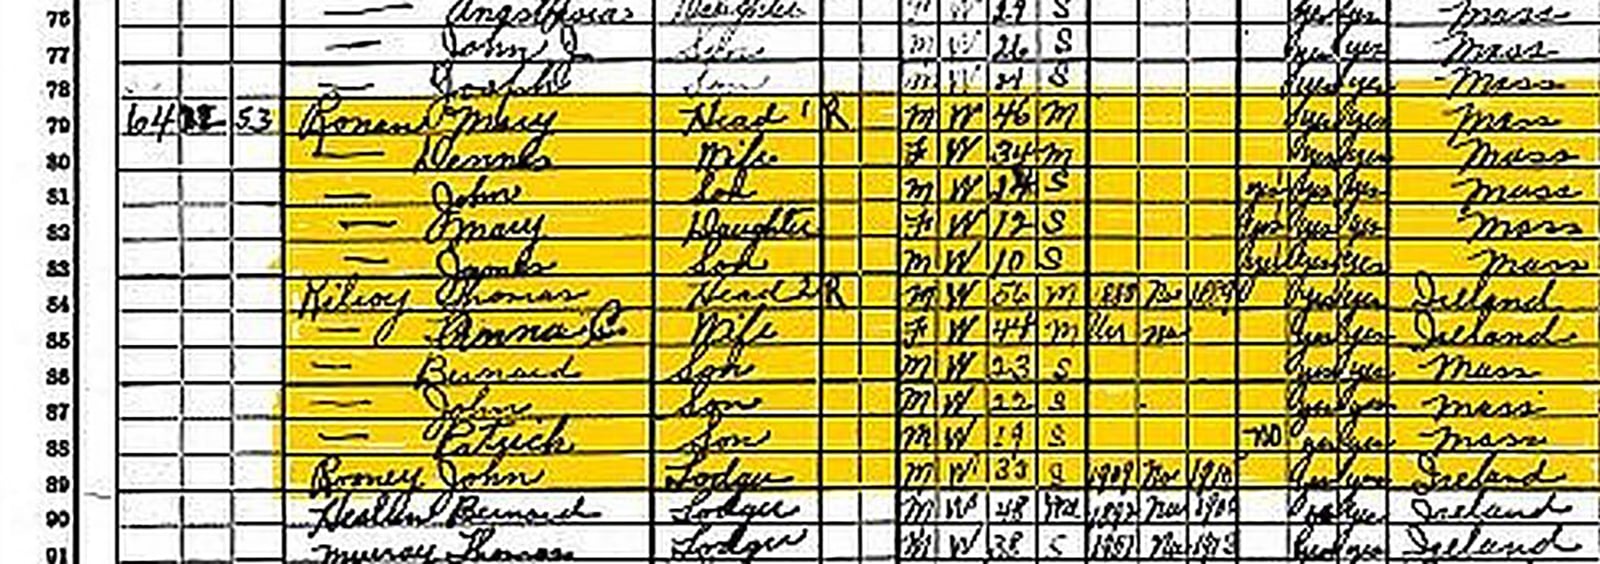 76 — Daughter F W 29 S Mass
77 — John J. Son M W 26 S yes yes Mass
78 — Joseph Son M W 21 S yes yes Mass
79 64 53 Ronan Mary Head 1 R M W 46 M yes yes Mass
80 — Dennis Wife F W 34 M yes yes Mass
81 — John Son M W 14 S yes yes yes Mass
82 — Mary Daughter F W 12 S yes yes yes Mass
83 — James Son M W 10 S yes yes yes Mass
84 Kilroy Thomas Head 2 R M W 56 M yes yes Ireland
85 — Anna C. Wife F W 44 M yes yes Ireland
86 — Bernard Son M W 23 S yes yes Mass
87 — John Son M W 22 S yes yes Mass
88 — Patrick Son M W 19 S no yes yes Mass
89 Rooney John Lodger M W 33 S yes yes Ireland
90 Bernard Lodger M W 48 yes yes Ireland
91 Murray Thomas Lodger M W 38 S yes yes Ireland